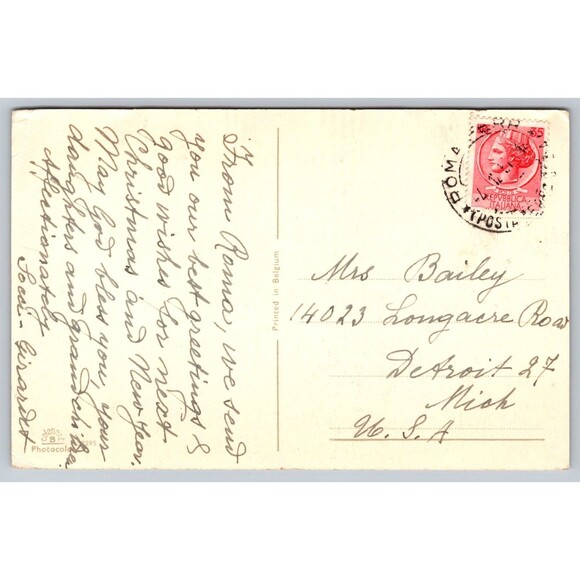 From Roma, we send
you our best greetings &
good wishes for next
Christmas and New Year.
May God bless you, your
daughters and grandchild.
Affectionately
Girardet
Printed in Belgium
Photocolor
35
REPVBBLICA
ITALIANA
ROMA
POSTA
Mrs Bailey
14023 Longacre Road
Detroit 27
Mich
U.S.A